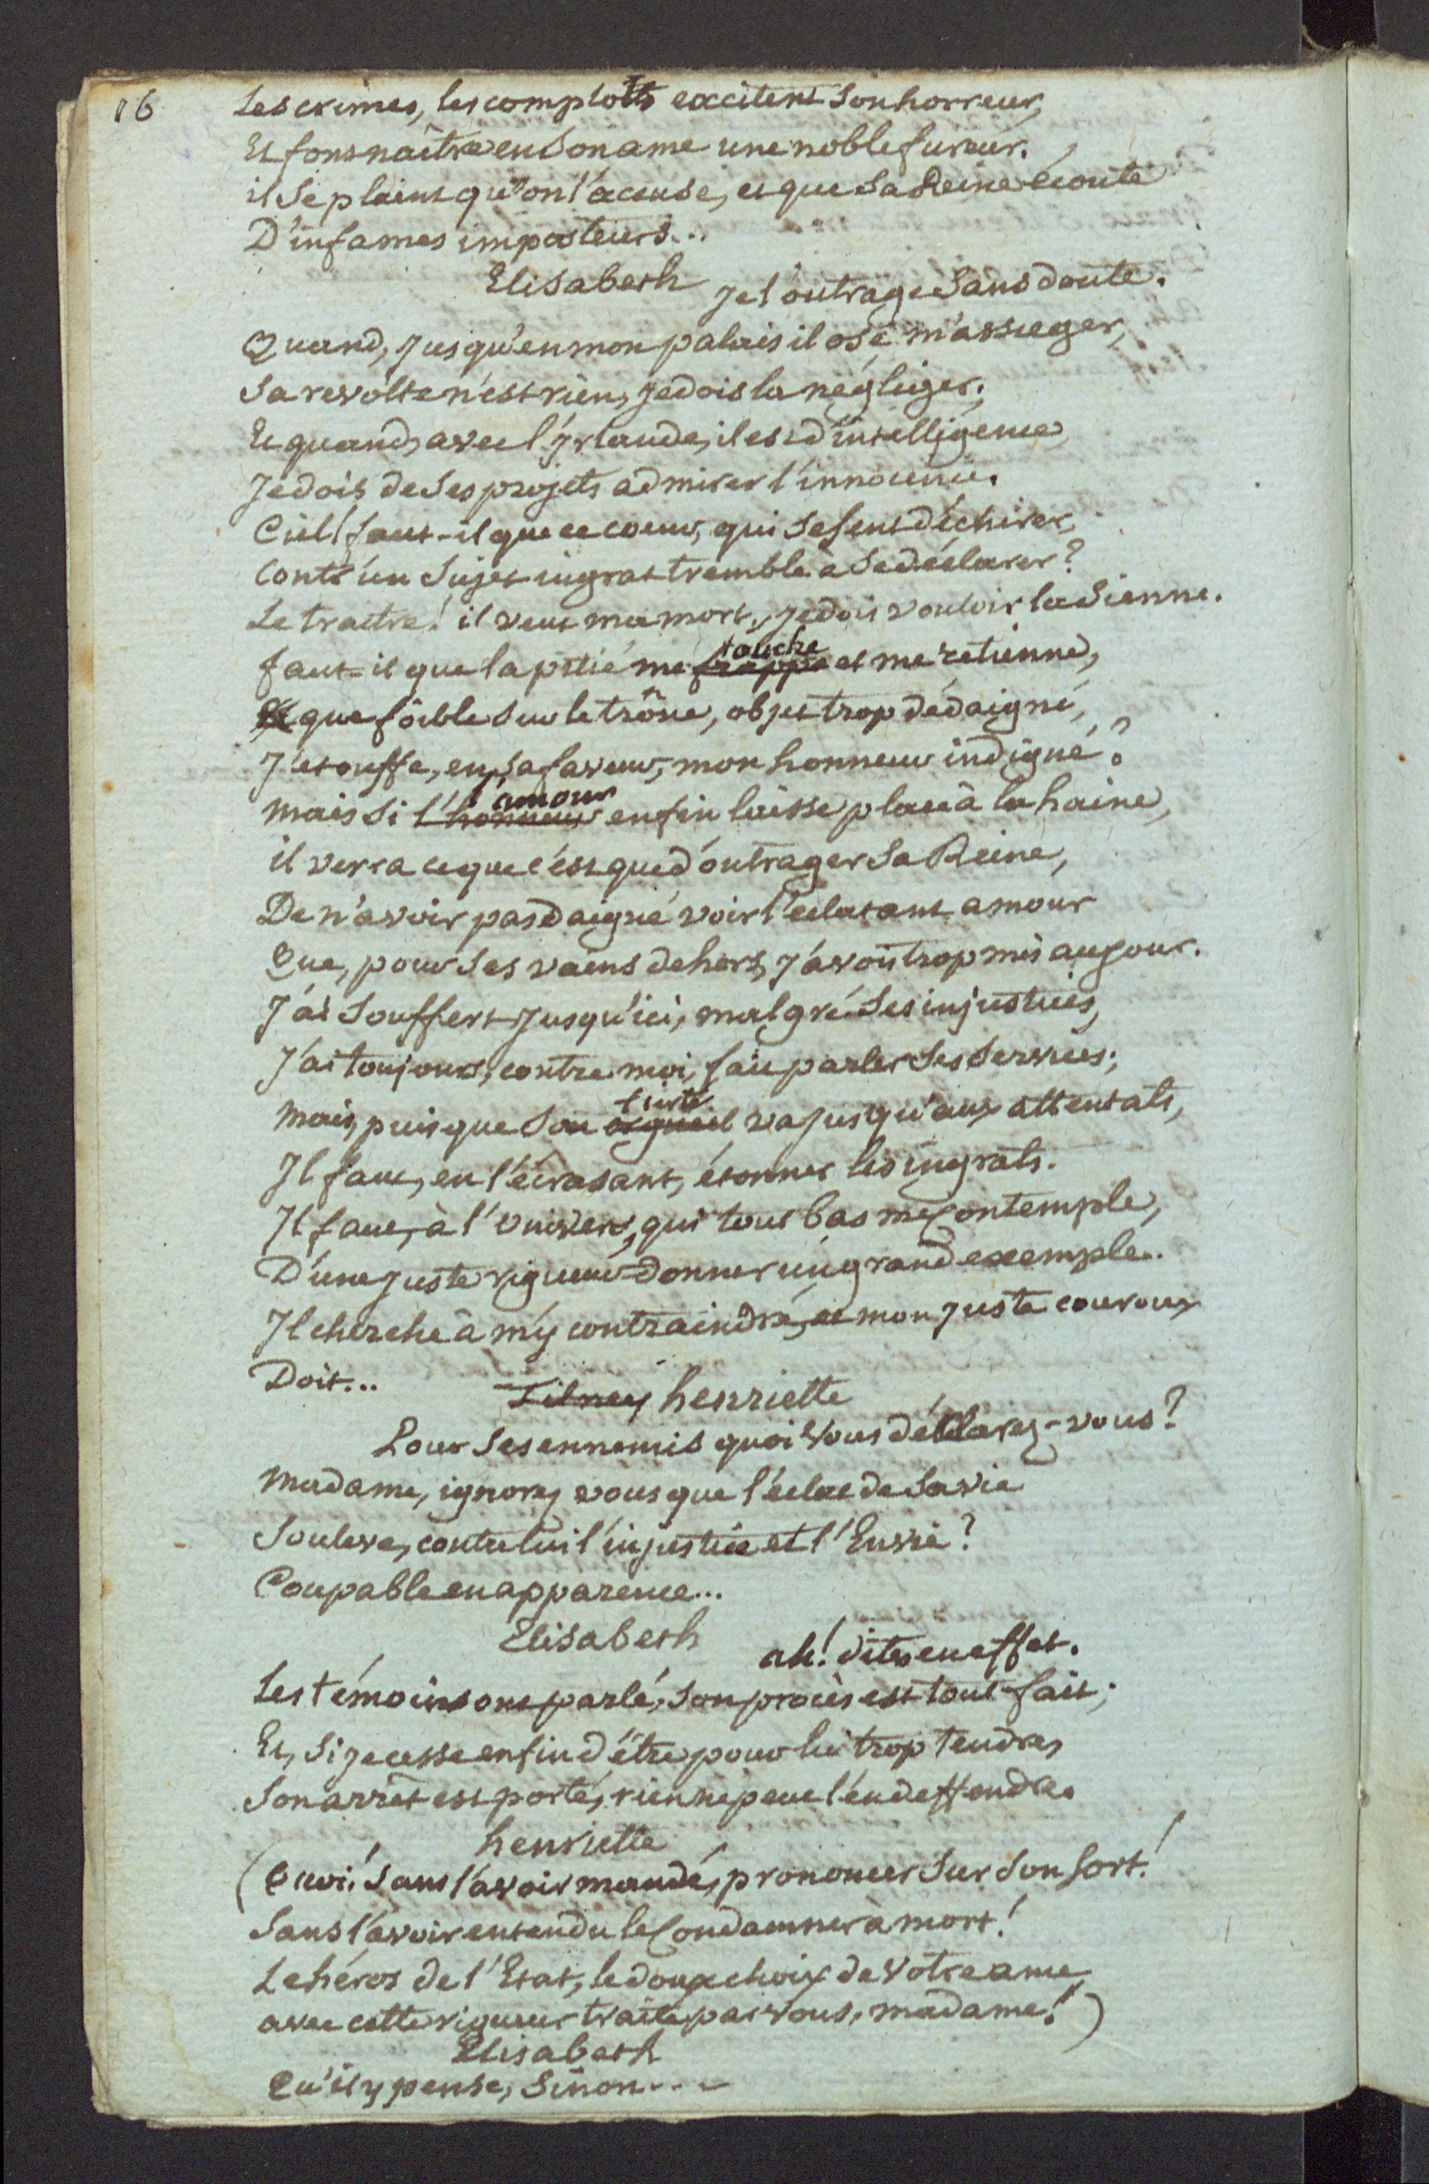 16
Les crimes, les complots excitent Son horreur,
Et font naître en Son ame une noble fureur.
il Se plaint qu'on l'accuse, et que Sa Reine écoute
D'infames imposteurs...
Elisabeth
Je l'outrage Sans doute.
Quand, Jusqu'en mon palais il ose m'assieger,
Sa revolte n'est rien, Je dois la négliger;
Et quand, avec l'Jrlande, il est d'intelligence,
Je dois de Ses projets admirer l'innocence.
Ciel! faut-il que ce coeur, qui Se Sent déchirer,
Contr'un Sujet ingrat tremble à Se déclarer?
Le traitre! il veut ma mort, Je dois vouloir la Sienne.
touche
faut-il que la pitié me frappe et me retienne,
Et que foible Sur le trône, objet trop dédaigné,
J'étouffe, en Sa faveur, mon honneur indigné?
l'amour
Mais Si l'honneur enfin laisse place à la haine,
il verra ce que c'est que d'outrager Sa Reine,
De n'avoir pas daigné voir l'éclatant amour
Que, pour Ses vains dehors, J'avois trop mis au Jour.
J'ai Souffert Jusqu'ici, malgré Ses injustices,
J'ai toujours, contre moi, fait parler Ses Services;
fierté
Mais, puisque Son orgueil va Jusqu'aux attentats,
Jl faut, en l'écrasant, étonner les ingrats.
Jl faut, à l'Univers, qui tout bas me Contemple,
D'une Juste rigueur donner un grand exemple.
Jl cherche à m'y contraindre, et mon Juste couroux
Doit...
Tilney henriette
Pour Ses ennemis quoi vous déclarez-vous?
Madame, ignorez vous que l'éclat de Sa vie
Souleve, contre lui l'injustice et l'Envie?
Coupable en apparence...
Elisabeth
ah! dites en effet.
Les témoins ont parlé, Son procès est tout fait;
Et, Si Je cesse enfin d'être pour lui trop tendre,
Son arrêt est porté, rien ne peut l'en deffendre.
henriette
(Quoi! Sans l'avoir mandé, prononcer Sur Son Sort!
Sans l'avoir entendu le Condamner à mort!
Le héros de l'Etat, le doux choix de Votre ame,
avec cette rigueur traité par vous, madame!)
Elisabeth
Qu'il y pense, Sinon...